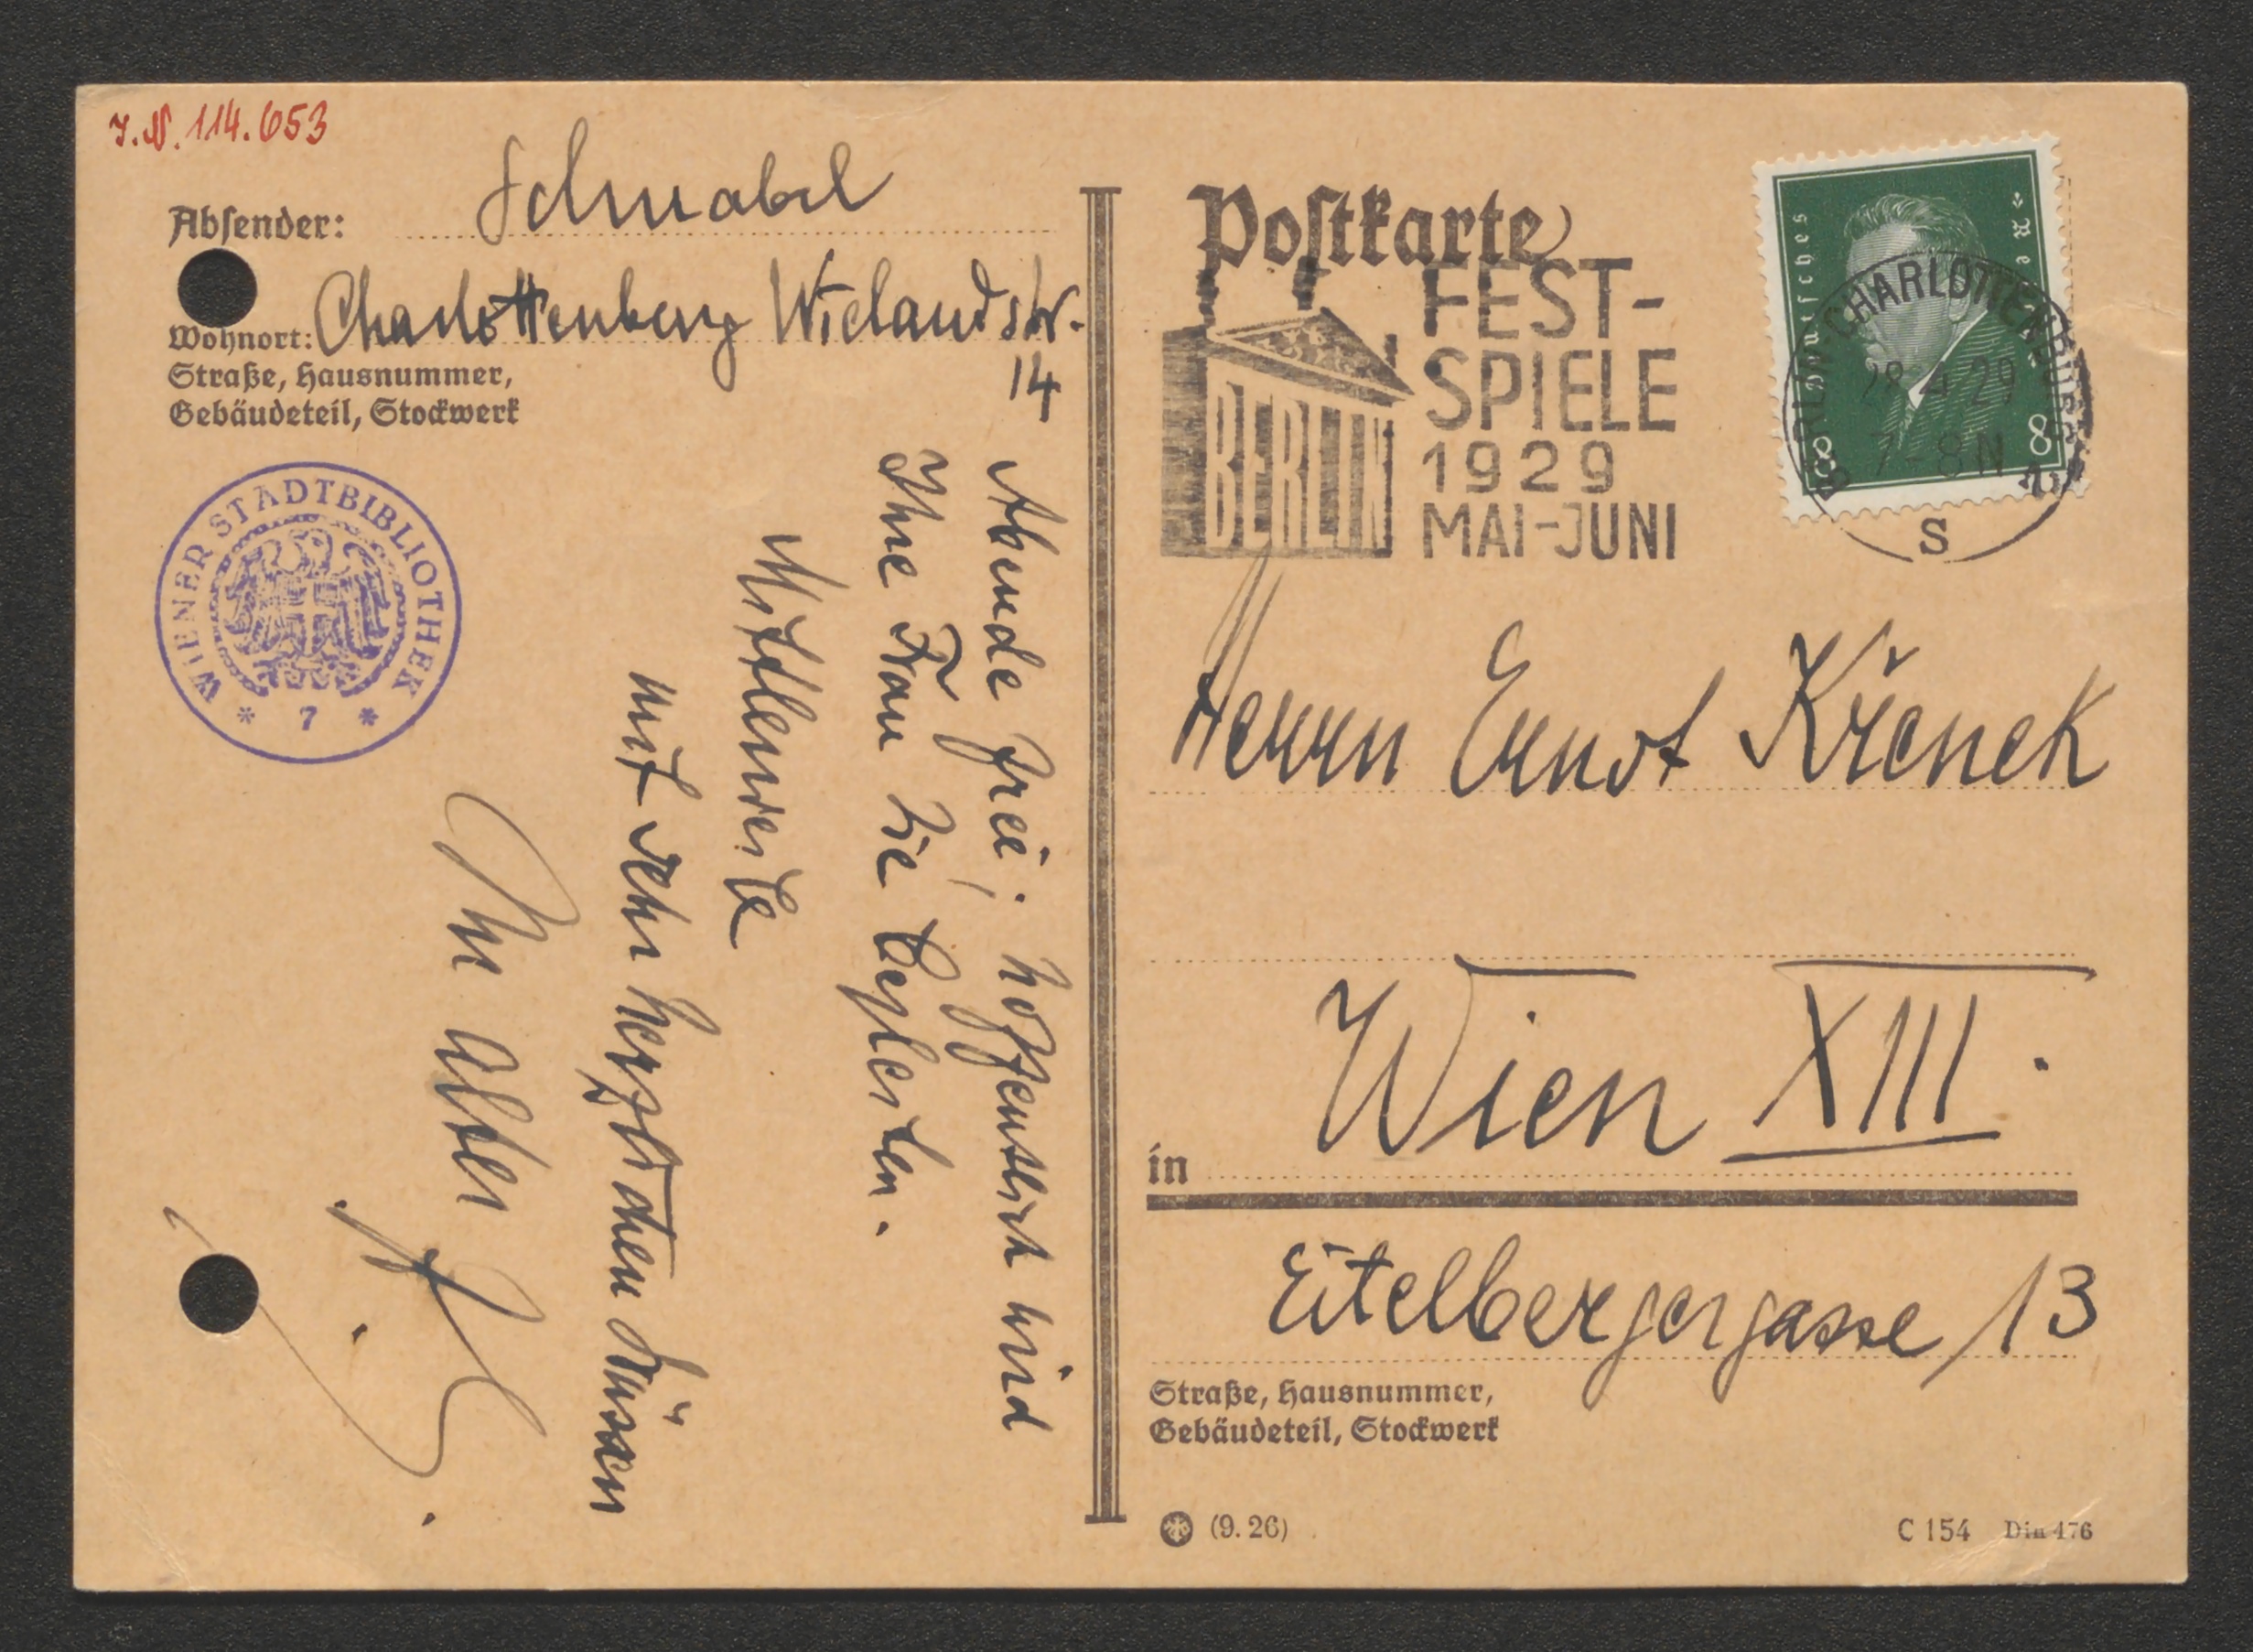 J.N. 114.653
Absender: Schnabel
Wohnort: Charlottenburg Wielandstr.
14
Straße, Hausnummer,
Gebäudeteil, Stockwerk
WIENER STADTBIBLIOTHEK
* 7 *
Abende frei; hoffentlich wird
Ihre Frau Sie begleiten.
Mittlerweile
mit sehr herzlichen Grüssen
Ihr alter
Postkarte
FEST-
SPIELE
1929
MAI-JUNI
BERLIN
Deutsches Reich
8 8
BERLIN-CHARLOTTENBURG
28.4.29
7-8 N
S
Herrn Ernst Křenek
in Wien XIII.
Eitelbergergasse 13
Straße, Hausnummer,
Gebäudeteil, Stockwerk
(9. 26)
C 154 Din 476